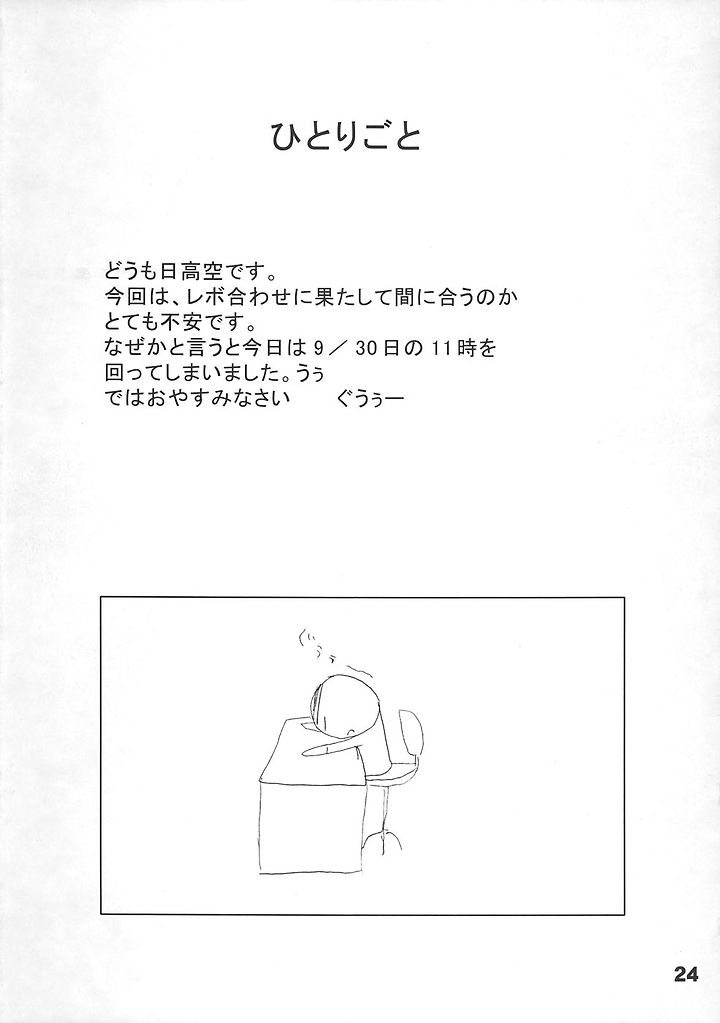 ひとりごと
どうも日高空です。
今回は、レボ合わせに果たして間に合うのか
とても不安です。
なぜかと言うと今日は9／30日の11時を
回ってしまいました。うぅ
ではおやすみなさい　　ぐうぅー
ぐぅぅー
24